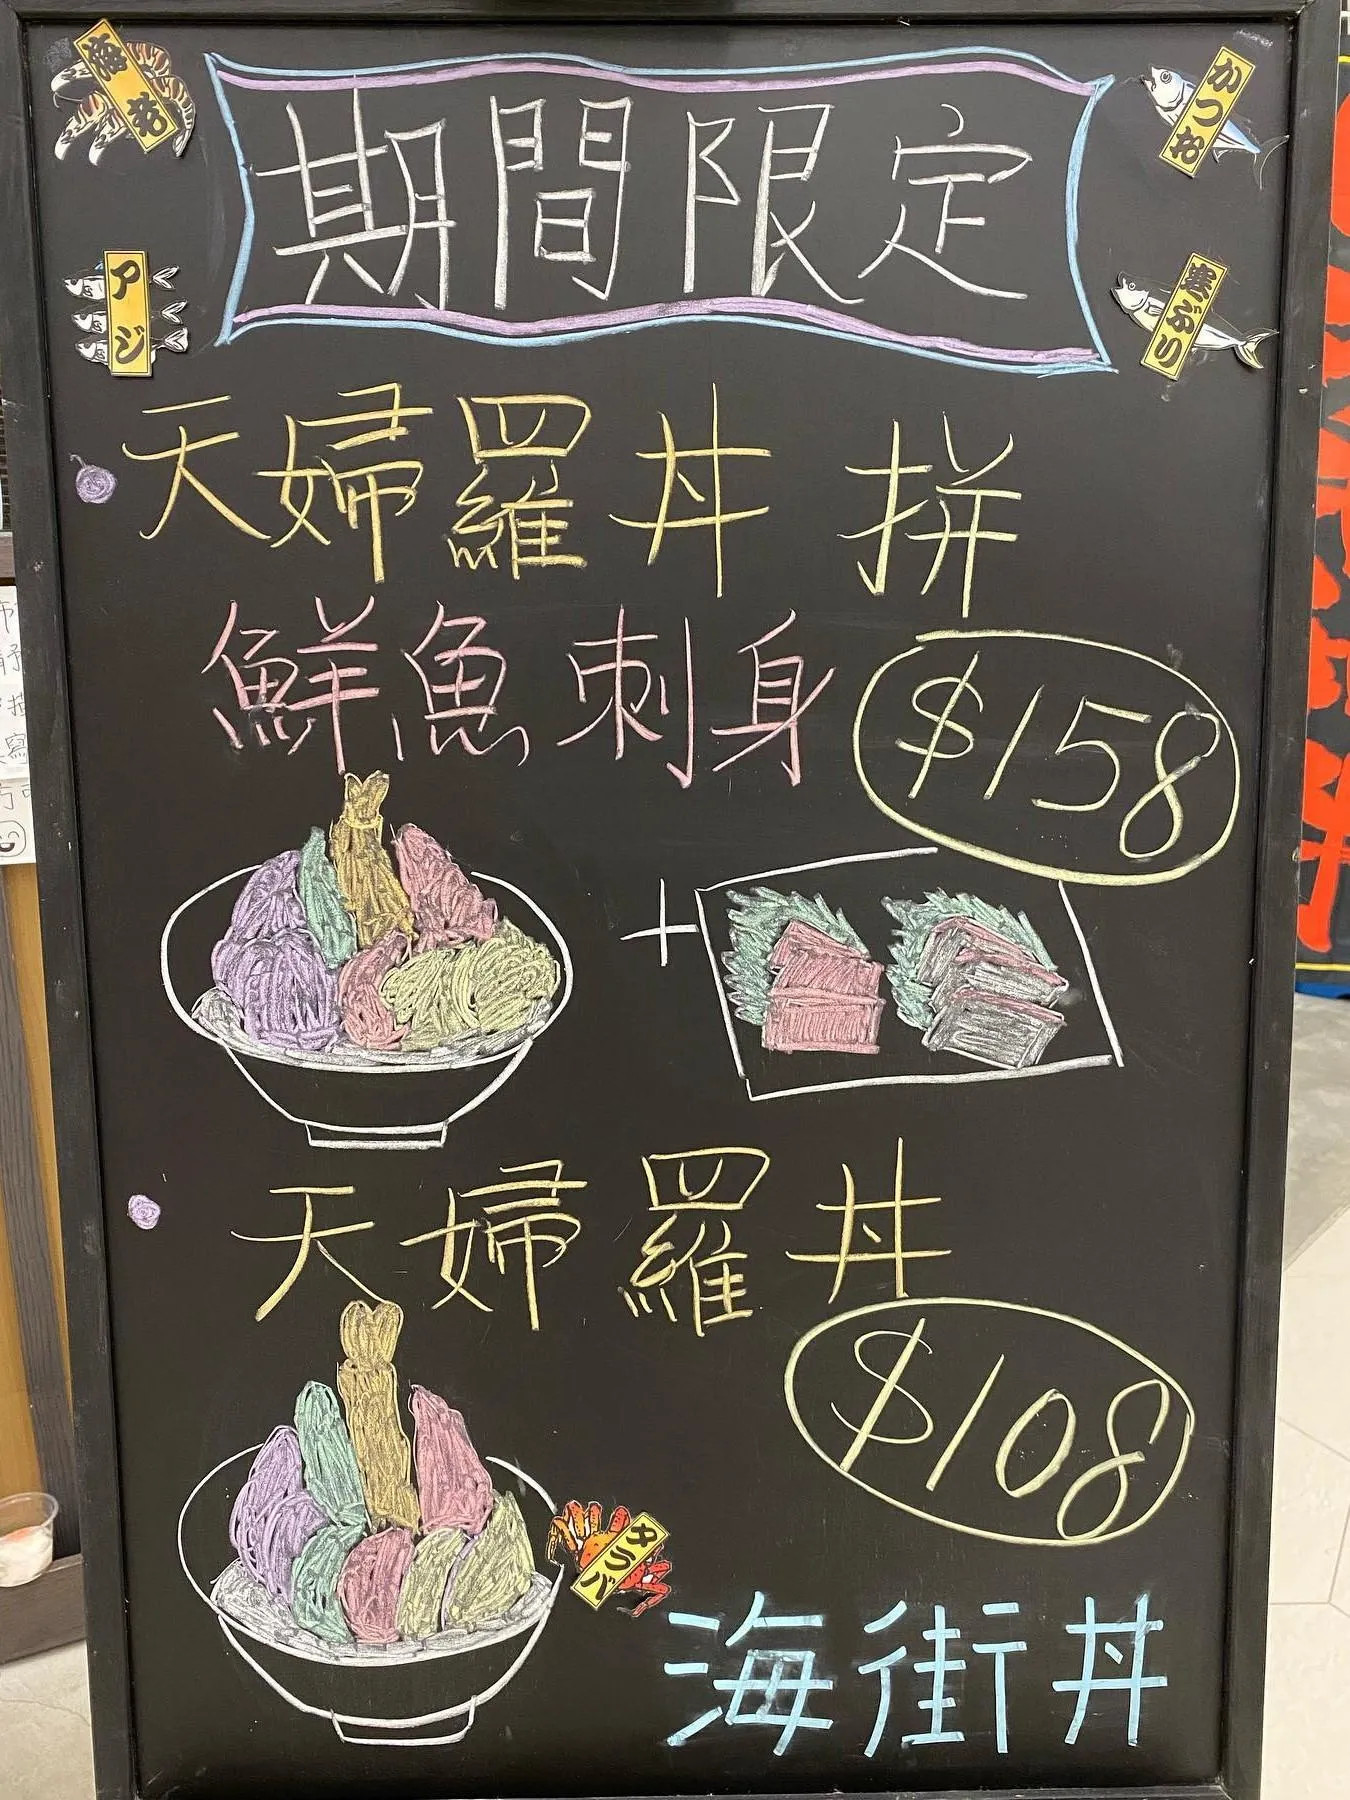 期間限定
海老
かつお
アジ
寒ぶり
天婦羅丼 拼
鮮魚刺身
$158
+
天婦羅丼
$108
タラバ
海街丼